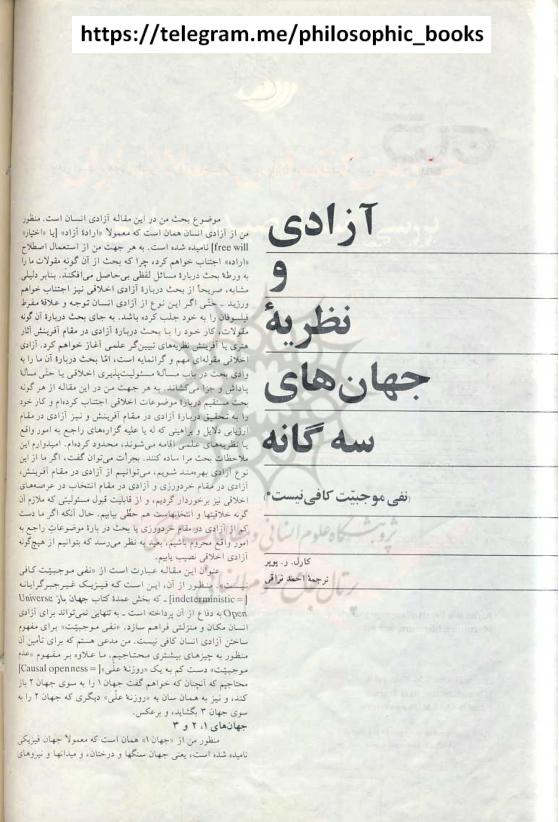 https://telegram.me/philosophic_books
آزادی
و
نظریهٔ
جهان‌های
سه گانه
(نفی موجبیّت کافی نیست*)
کارل. ر. پوپر
ترجمهٔ احمد نراقی
موضوع بحث من در این مقاله آزادی انسان است. منظور
من از آزادی انسان همان است که معمولاً «ارادهٔ آزاد» [یا «اختیار»
free will] نامیده شده است. به هر جهت من از استعمال اصطلاح
«اراده» اجتناب خواهم کرد، چرا که بحث از آن گونه مقولات ما را
به ورطهٔ بحث دربارهٔ مسائل لفظی بی‌حاصل می‌افکند. بنابر دلیلی
مشابه، صریحاً از بحث دربارهٔ آزادی اخلاقی نیز اجتناب خواهم
ورزید - حتّی اگر این نوع از آزادی انسان توجه و علاقهٔ مفرط
فیلسوفان را به خود جلب کرده باشد. به جای بحث دربارهٔ آن گونه
مقولات، کار خود را با بحث دربارهٔ آزادی در مقام آفرینش آثار
هنری یا آفرینش نظریه‌های تبیین‌گر علمی آغاز خواهم کرد. آزادی
اخلاقی مقوله‌ای مهم و گرانمایه است، امّا بحث دربارهٔ آن ما را به
وادی بحث در باب مسألهٔ مسئولیت‌پذیری اخلاقی یا حتّی مسألهٔ
پاداش و جزا می‌کشاند. به هر جهت من در این مقاله از هر گونه
بحث مستقیم دربارهٔ موضوعات اخلاقی اجتناب کرده‌ام و کار خود
را به تحقیق دربارهٔ آزادی در مقام آفرینش و نیز آزادی در مقام
ارزیابی دلایل و براهینی که له یا علیه گزاره‌های راجع به امور واقع
یا نظریه‌های علمی اقامه می‌شوند، محدود کرده‌ام. امیدوارم این
ملاحظات بحث مرا ساده کنند. بجرأت می‌توان گفت، اگر ما از این
نوع آزادی بهره‌مند شویم، می‌توانیم از آزادی در مقام آفرینش،
آزادی در مقام خردورزی و آزادی در مقام انتخاب در عرصه‌های
اخلاقی نیز برخوردار گردیم، و از قابلیت قبول مسئولیتی که ملازم آن
گونه خلاقیتها و انتخابهاست هم حظّی بیابیم. حال آنکه اگر ما دست
کم از آزادی در مقام خردورزی یا بحث در بارهٔ موضوعات راجع به
امور واقع محروم باشیم، بعید به نظر می‌رسد که بتوانیم از هیچ‌گونه
آزادی اخلاقی نصیب یابیم.
عنوان این مقاله عبارت است از «نفی موجبیّت کافی
نیست». منظور از آن، این است که فیزیک غیرجبرگرایانه
[= indeterministic] - که بخش عمدهٔ کتاب جهان باز Universe
Open به دفاع از آن پرداخته است - به تنهایی نمی‌تواند برای آزادی
انسان مکان و منزلتی فراهم سازد. «نفی موجبیّت» برای مفهوم
ساختن آزادی انسان کافی نیست. من مدعی هستم که برای تأمین آن
منظور به چیزهای بیشتری محتاجیم. ما علاوه بر مفهوم «عدم
موجبیّت» دست کم به یک «روزنهٔ علّی» [= Causal openness]
محتاجیم که آنچنان که خواهم گفت جهان ۱ را به سوی جهان ۲ باز
کند، و نیز به همان سان به «روزنهٔ علّی» دیگری که جهان ۲ را به
سوی جهان ۳ بگشاید، و برعکس.
جهان‌های ۱، ۲ و ۳
منظور من از «جهان ۱» همان است که معمولاً جهان فیزیکی
نامیده شده است، یعنی جهان سنگها و درختان، و میدانها و نیروهای